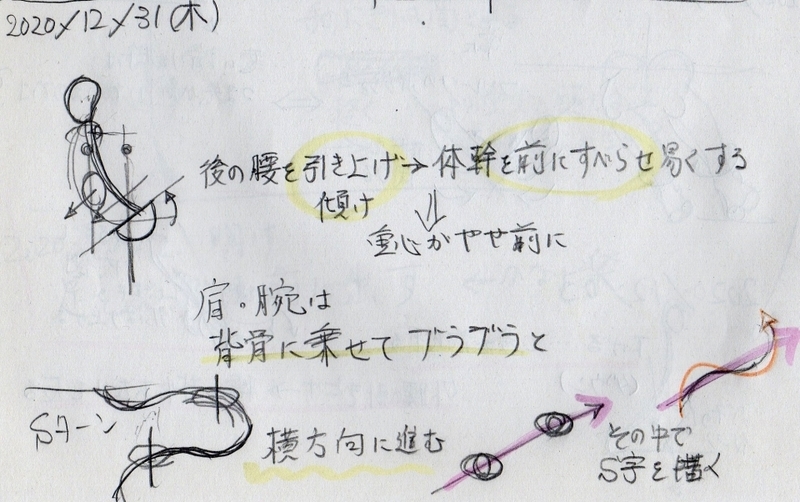 2020/12/31(木)
後の腰を引き上げ→体幹を前にすべらせ易くする
傾け
重心がやせ前に
肩・腕は
背骨に乗せてブラブラと
Sターン
横方向に進む
その中で
S字を描く